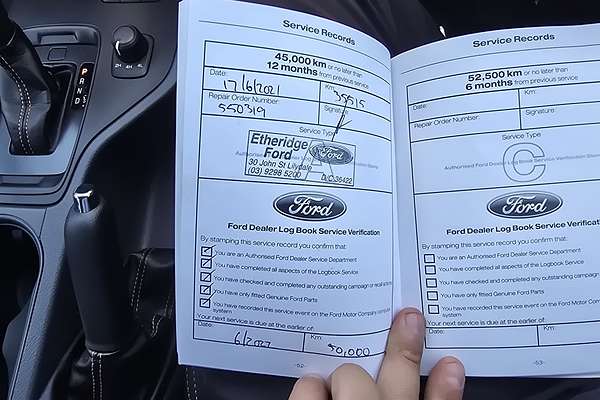 2H 4L
P
R
N
D
S
Service Records
45,000 km or no later than
12 months from previous service
Date: 17/6/2021 Km: 35515
Repair Order Number: Signature:
550319
Service Type
Etheridge
Ford
30 John St Lilydale
(03) 9298 5200 D/C:36422
Ford
Authorised Ford
Ford
Ford Dealer Log Book Service Verification
By stamping this service record you confirm that:
You are an Authorised Ford Dealer Service Department
You have completed all aspects of the Logbook Service
You have checked and completed any outstanding campaign or recall actions
You have only fitted Genuine Ford Parts
You have recorded this service event on the Ford Motor Company computer
system
Your next service is due at the earlier of:
Date: Km:
50,000
-52-
Service Records
52,500 km or no later than
6 months from previous service
Date: Km:
Repair Order Number: Signature:
Service Type
C
Authorised Ford Dealer Log Book Service Verification Stamp
Ford
Ford Dealer Log Book Service Verification
By stamping this service record you confirm that:
You are an Authorised Ford Dealer Service Department
You have completed all aspects of the Logbook Service
You have checked and completed any outstanding
You have only fitted Genuine Ford Parts
You have recorded this service event on the Ford Motor
system
Your next service is due at the earlier of:
Date: Km:
-53-